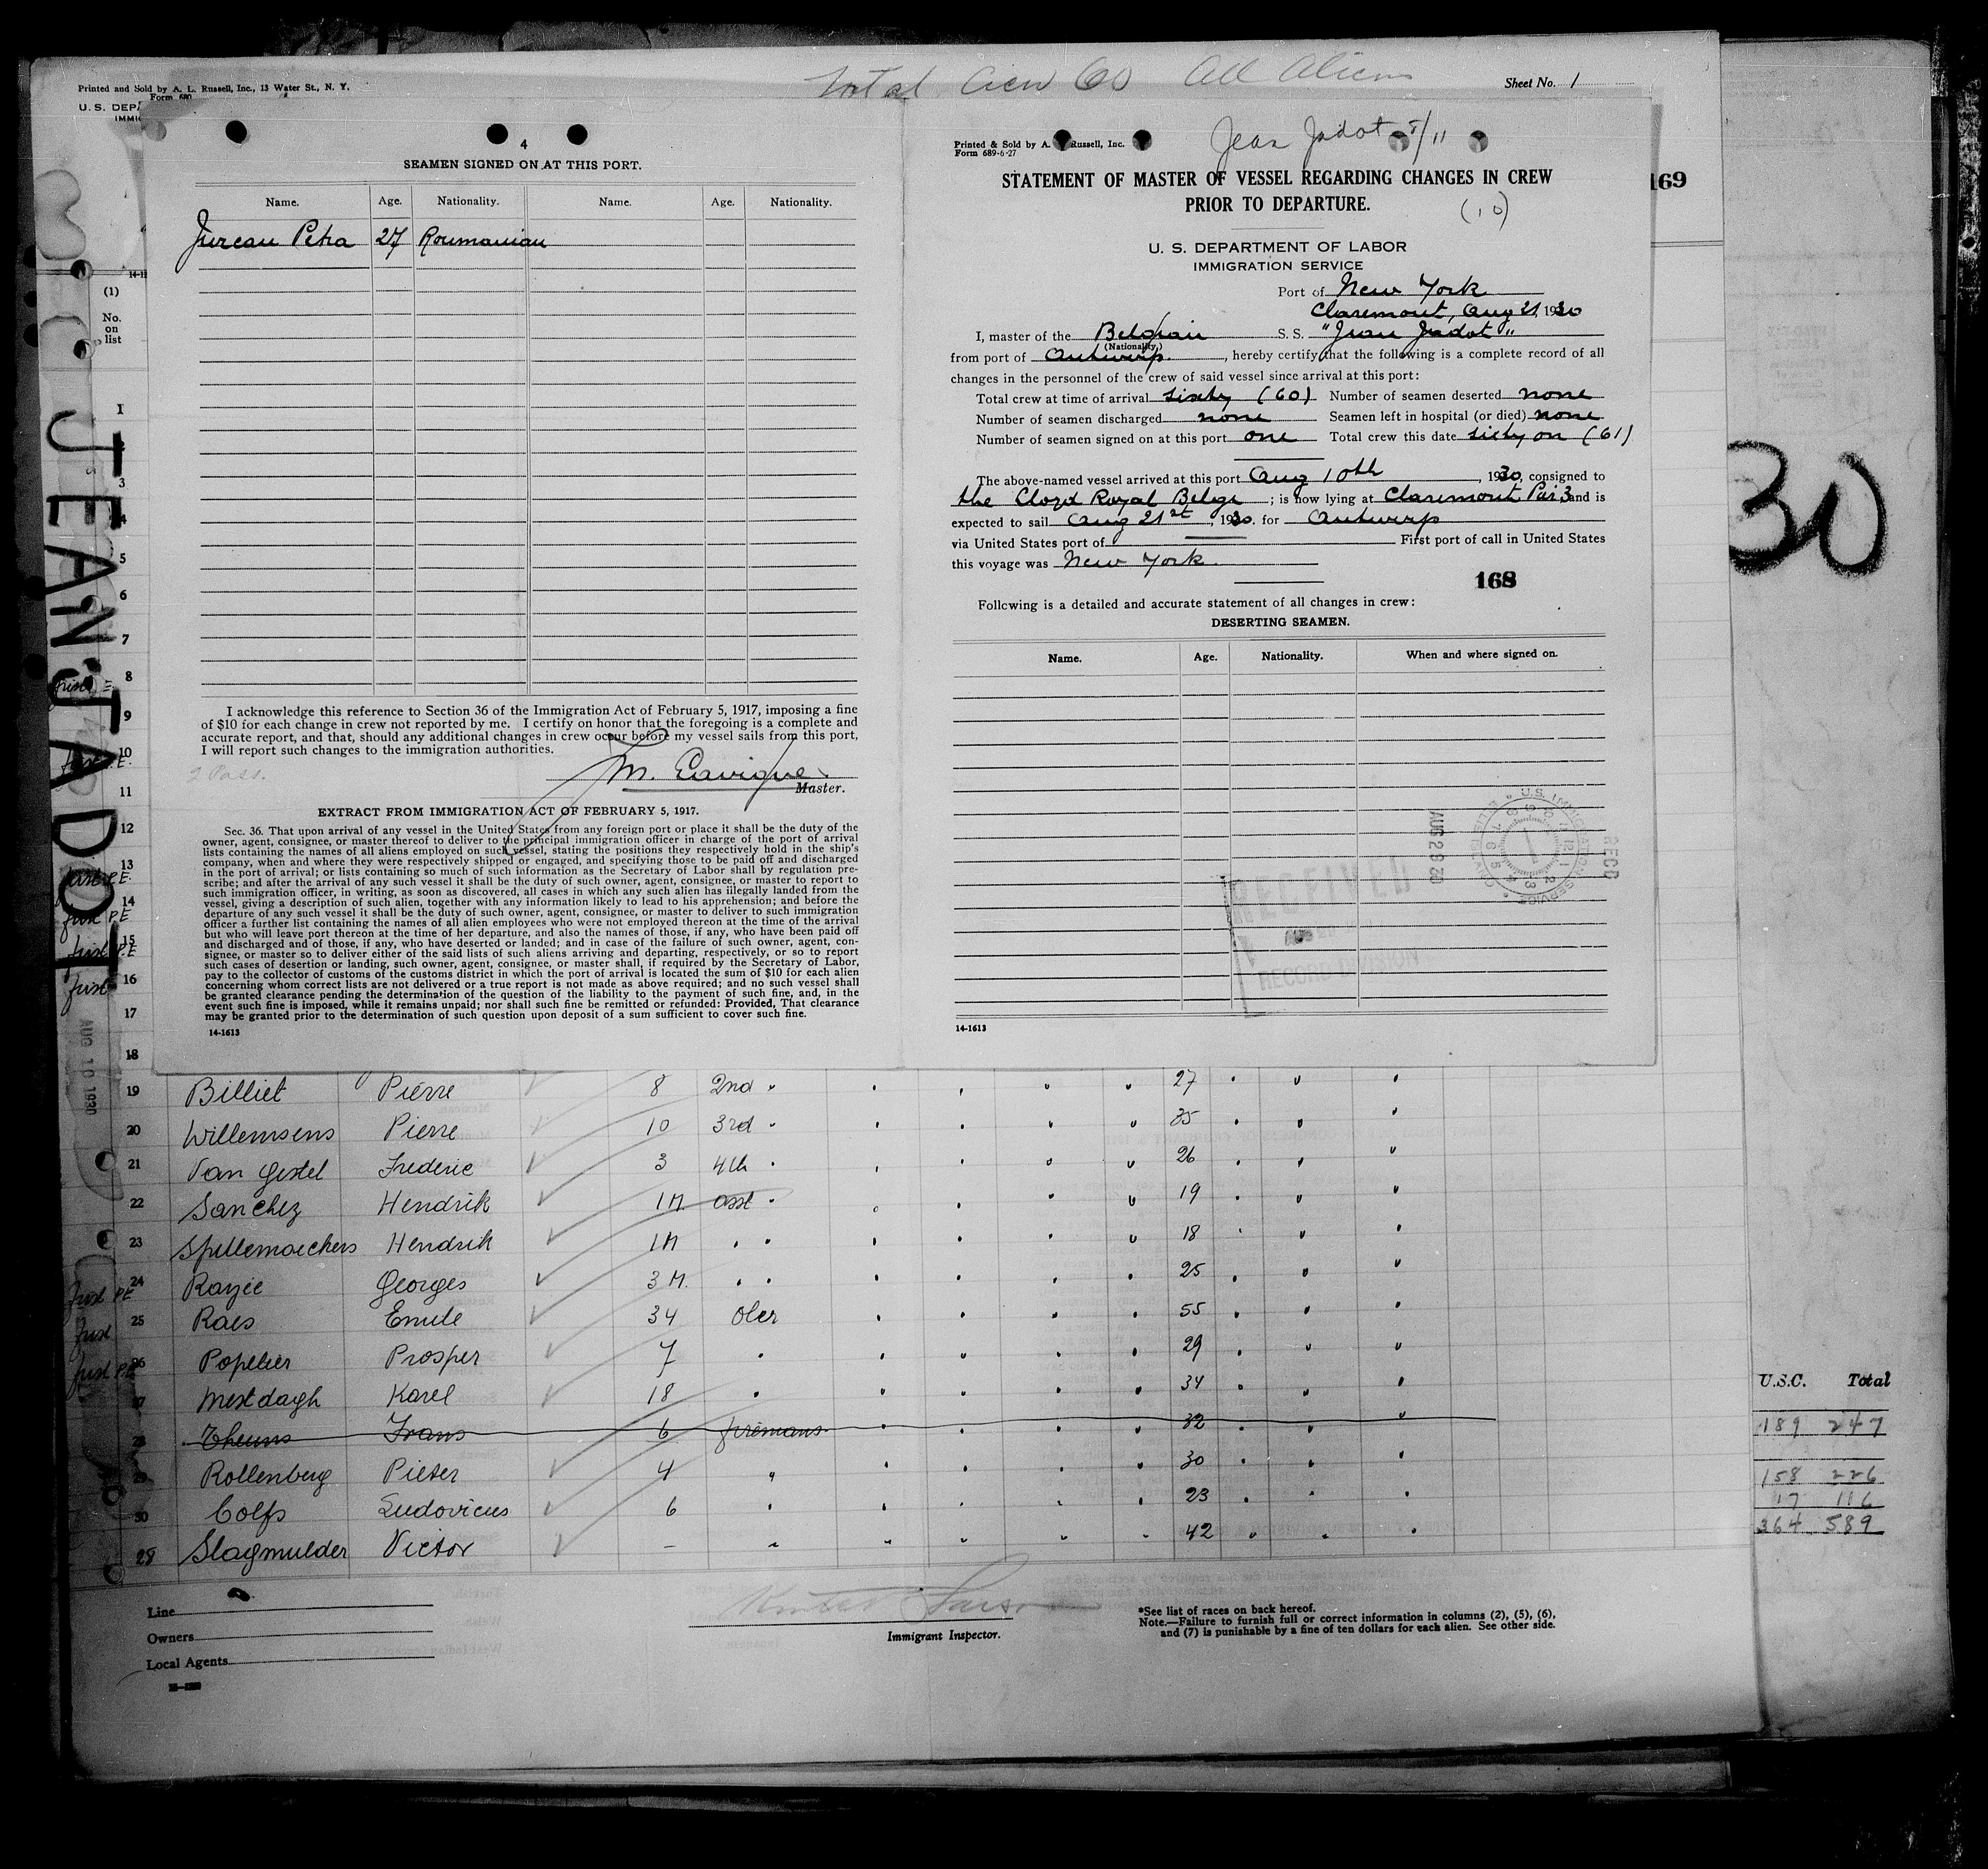 Total Crew 60 All Aliens
Sheet No. 1
Printed and Sold by A. L. Russell, Inc., 13 Water St., N. Y.
Form 680
U. S. DEP
IMMIG
4
SEAMEN SIGNED ON AT THIS PORT.
Name. Age. Nationality. Name. Age. Nationality.
Jurcau Petra 27 Roumanian
I acknowledge this reference to Section 36 of the Immigration Act of February 5, 1917, imposing a fine
of $10 for each change in crew not reported by me. I certify on honor that the foregoing is a complete and
accurate report, and that, should any additional changes in crew occur before my vessel sails from this port,
I will report such changes to the immigration authorities.
2 Pass.
Master.
EXTRACT FROM IMMIGRATION ACT OF FEBRUARY 5, 1917.
Sec. 36. That upon arrival of any vessel in the United States from any foreign port or place it shall be the duty of the
owner, agent, consignee, or master thereof to deliver to the principal immigration officer in charge of the port of arrival
lists containing the names of all aliens employed on such vessel, stating the positions they respectively hold in the ship's
company, when and where they were respectively shipped or engaged, and specifying those to be paid off and discharged
in the port of arrival; or lists containing so much of such information as the Secretary of Labor shall by regulation pre-
scribe; and after the arrival of any such vessel it shall be the duty of such owner, agent, consignee, or master to report to
such immigration officer, in writing, as soon as discovered, all cases in which any such alien has illegally landed from the
vessel, giving a description of such alien, together with any information likely to lead to his apprehension; and before the
departure of any such vessel it shall be the duty of such owner, agent, consignee, or master to deliver to such immigration
officer a further list containing the names of all alien employees who were not employed thereon at the time of the arrival
but who will leave port thereon at the time of her departure, and also the names of those, if any, who have been paid off
and discharged and of those, if any, who have deserted or landed; and in case of the failure of such owner, agent, con-
signee, or master so to deliver either of the said lists of such aliens arriving and departing, respectively, or so to report
such cases of desertion or landing, such owner, agent, consignee, or master shall, if required by the Secretary of Labor,
pay to the collector of customs of the customs district in which the port of arrival is located the sum of $10 for each alien
concerning whom correct lists are not delivered or a true report is not made as above required; and no such vessel shall
be granted clearance pending the determination of the question of the liability to the payment of such fine, and, in the
event such fine is imposed, while it remains unpaid; nor shall such fine be remitted or refunded: Provided, That clearance
may be granted prior to the determination of such question upon deposit of a sum sufficient to cover such fine.
14-1613
Jean Jadot 8/11
Printed & Sold by A. Russell, Inc.
Form 689-6-27
STATEMENT OF MASTER OF VESSEL REGARDING CHANGES IN CREW
PRIOR TO DEPARTURE.
(10)
169
U. S. DEPARTMENT OF LABOR
IMMIGRATION SERVICE
Port of New York
Claremont, Aug 21, 1930
I, master of the Belgian S. S. "Jean Jadot"
(Nationality)
from port of Antwerp, hereby certify that the following is a complete record of all
changes in the personnel of the crew of said vessel since arrival at this port:
Total crew at time of arrival sixty (60) Number of seamen deserted none
Number of seamen discharged none Seamen left in hospital (or died) none
Number of seamen signed on at this port one Total crew this date sixty on (61)
The above-named vessel arrived at this port Aug 10th, 1930, consigned to
the Lloyd Royal Belge; is now lying at Claremont Pier 3 and is
expected to sail Aug 21st, 1930. for Antwerp
via United States port of First port of call in United States
this voyage was New York.
168
Following is a detailed and accurate statement of all changes in crew:
DESERTING SEAMEN.
Name. Age. Nationality. When and where signed on.
RECEIVED
AUG
RECORD DIVISION
AUG 29 30
RECD
U.S. IMMIGRATION SERVICE
14-1613
JEAN JADOT
30
(1)
No.
on
list
1
3
4
5
6
7
8
9
10
11
12
13
14
15
16
17
18
AUG 10 1930
19 Billiet Pierre 8 2nd 27
20 Willemsens Pierre 10 3rd 35
21 Van Gestel Frederic 3 4th 26
22 Sanchez Hendrik 1M asst 19
23 Spillemaeckers Hendrik 1M 18
24 Rayée Georges 3M. 25
25 Raes Emile 34 Oler 55
26 Popelier Prosper 7 29
27 Mestdagh Karel 18 34
28 Theuns Frans 6 firemans 32
29 Rollenberg Pieter 4 " 30
30 Colfs Ludovicus 6 23
28 Slagmulder Victor - 42
U.S.C. Total
189 247
158 226
17 116
364 589
Line
Owners
Local Agents
Immigrant Inspector.
*See list of races on back hereof.
Note.—Failure to furnish full or correct information in columns (2), (5), (6),
and (7) is punishable by a fine of ten dollars for each alien. See other side.